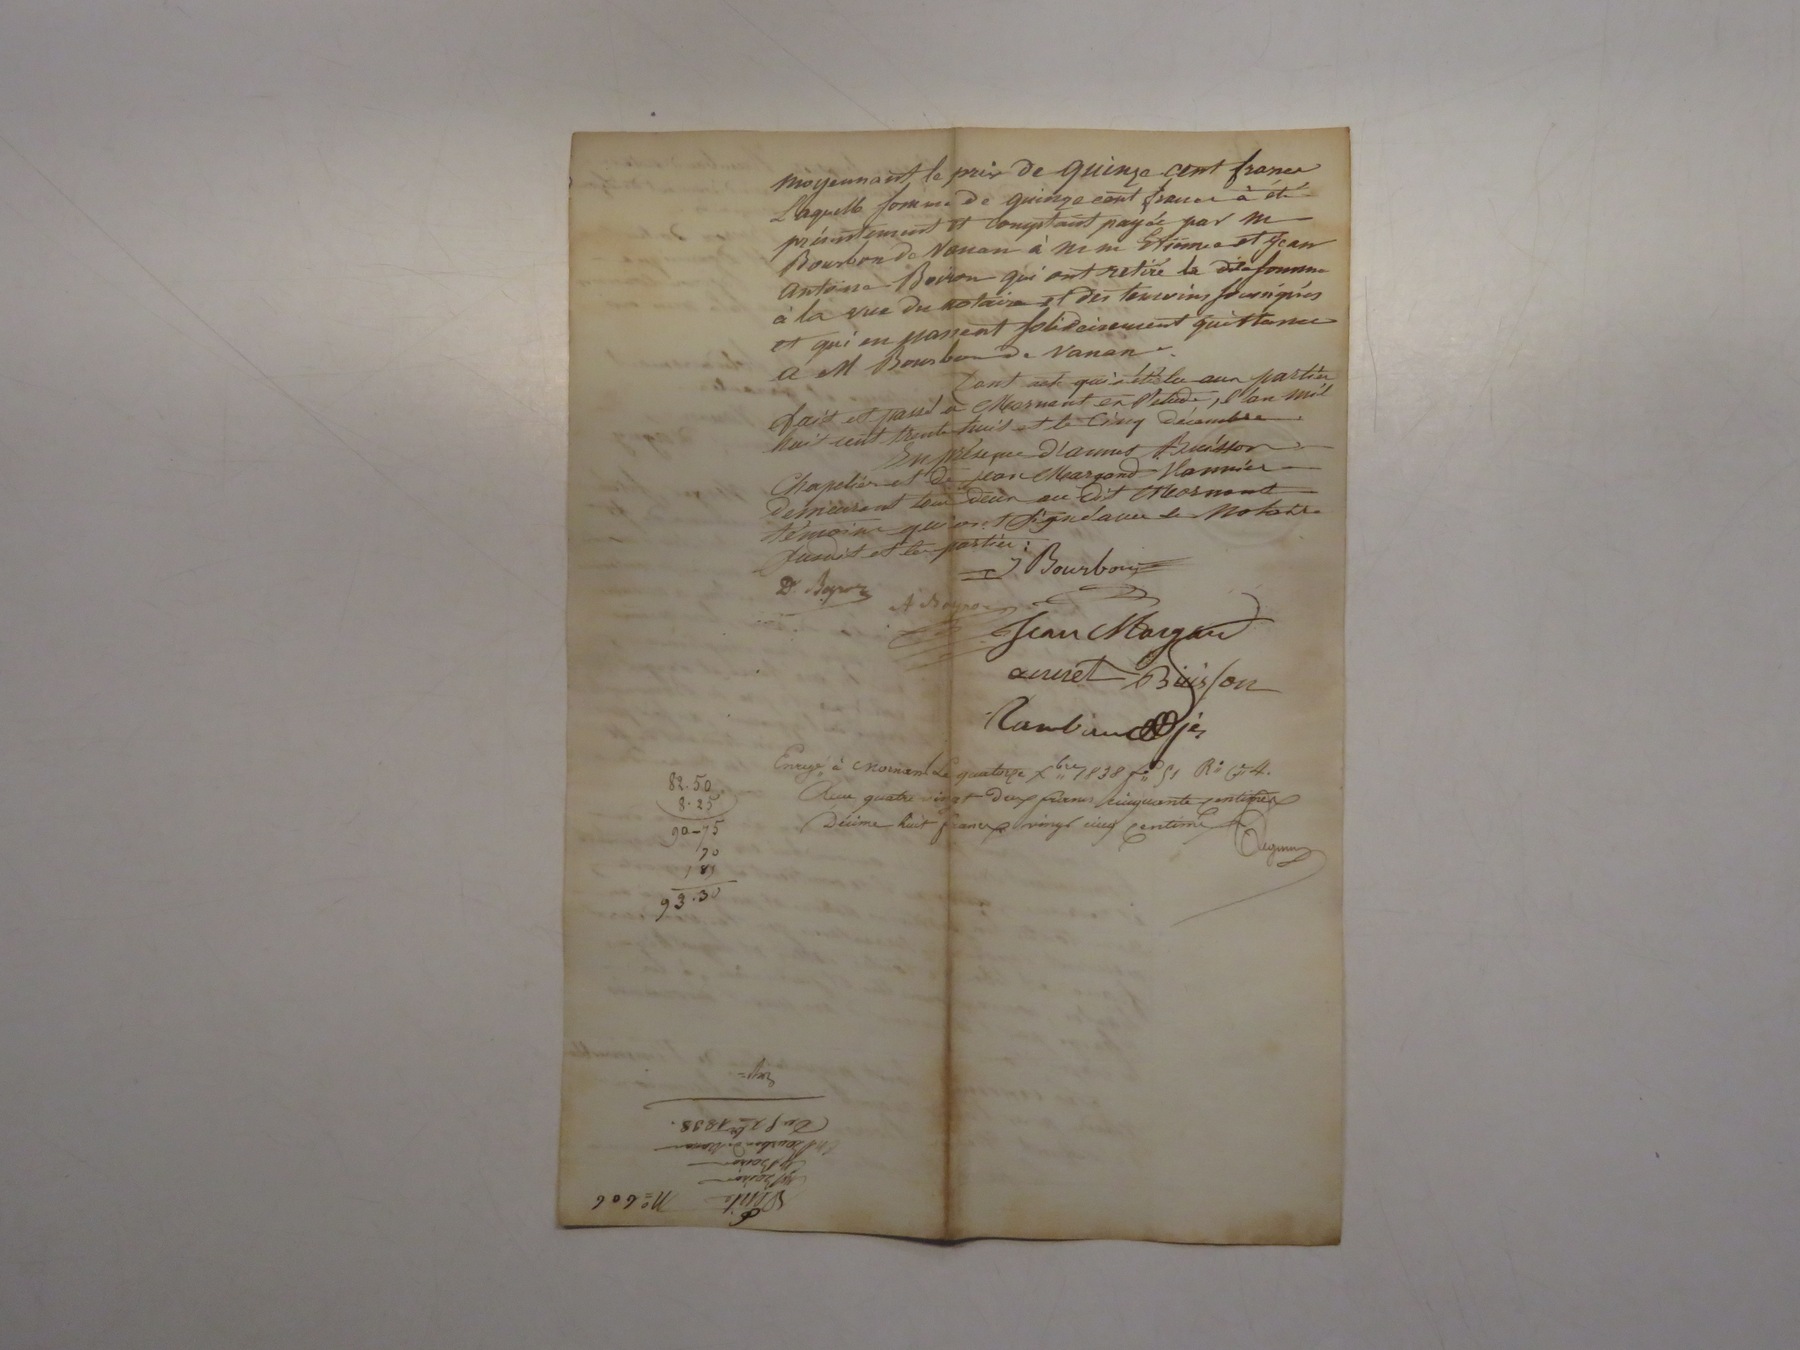 moyennant le prix de quinze cent francs
Laquelle somme de quinze cent francs à été
présentement et comptant payée par m
Bourbon de Vanan à m m Etienne et Jean
antoine Boiron qui ont retiré la dite somme
à la vue du notaire et des temoins soussignés
et qui en passent solidairement quittance
a M Bourbon de Vanan.
Dont acte qui a été lu aux parties
fait et passé à Mornant en l'etude, l'an mil
huit cent trente huit et le Cinq décembre
En présence d'annet Buisson
Chapelier et de Jean Margand
demeurant tous deux au dit Mornant
témoins qui ont signé avec le Notaire
susdit et les parties :
J Bourbon
D. Boyron
A Boyron
Jean Margand
annet Buisson
Enregé à Mornant Le quatorze Xbre 1838 fo 51 Ro Ce 4.
Reçu quatre vingt Deux francs cinquante centimes
Décime huit francs vingt cinq centimes
82.50
8.25
90-75
70
185
93.30
No 606
Vente
Boiron
Boiron
à M Bourbon de Vanan
Du 5 Xbre 1838.
Expn